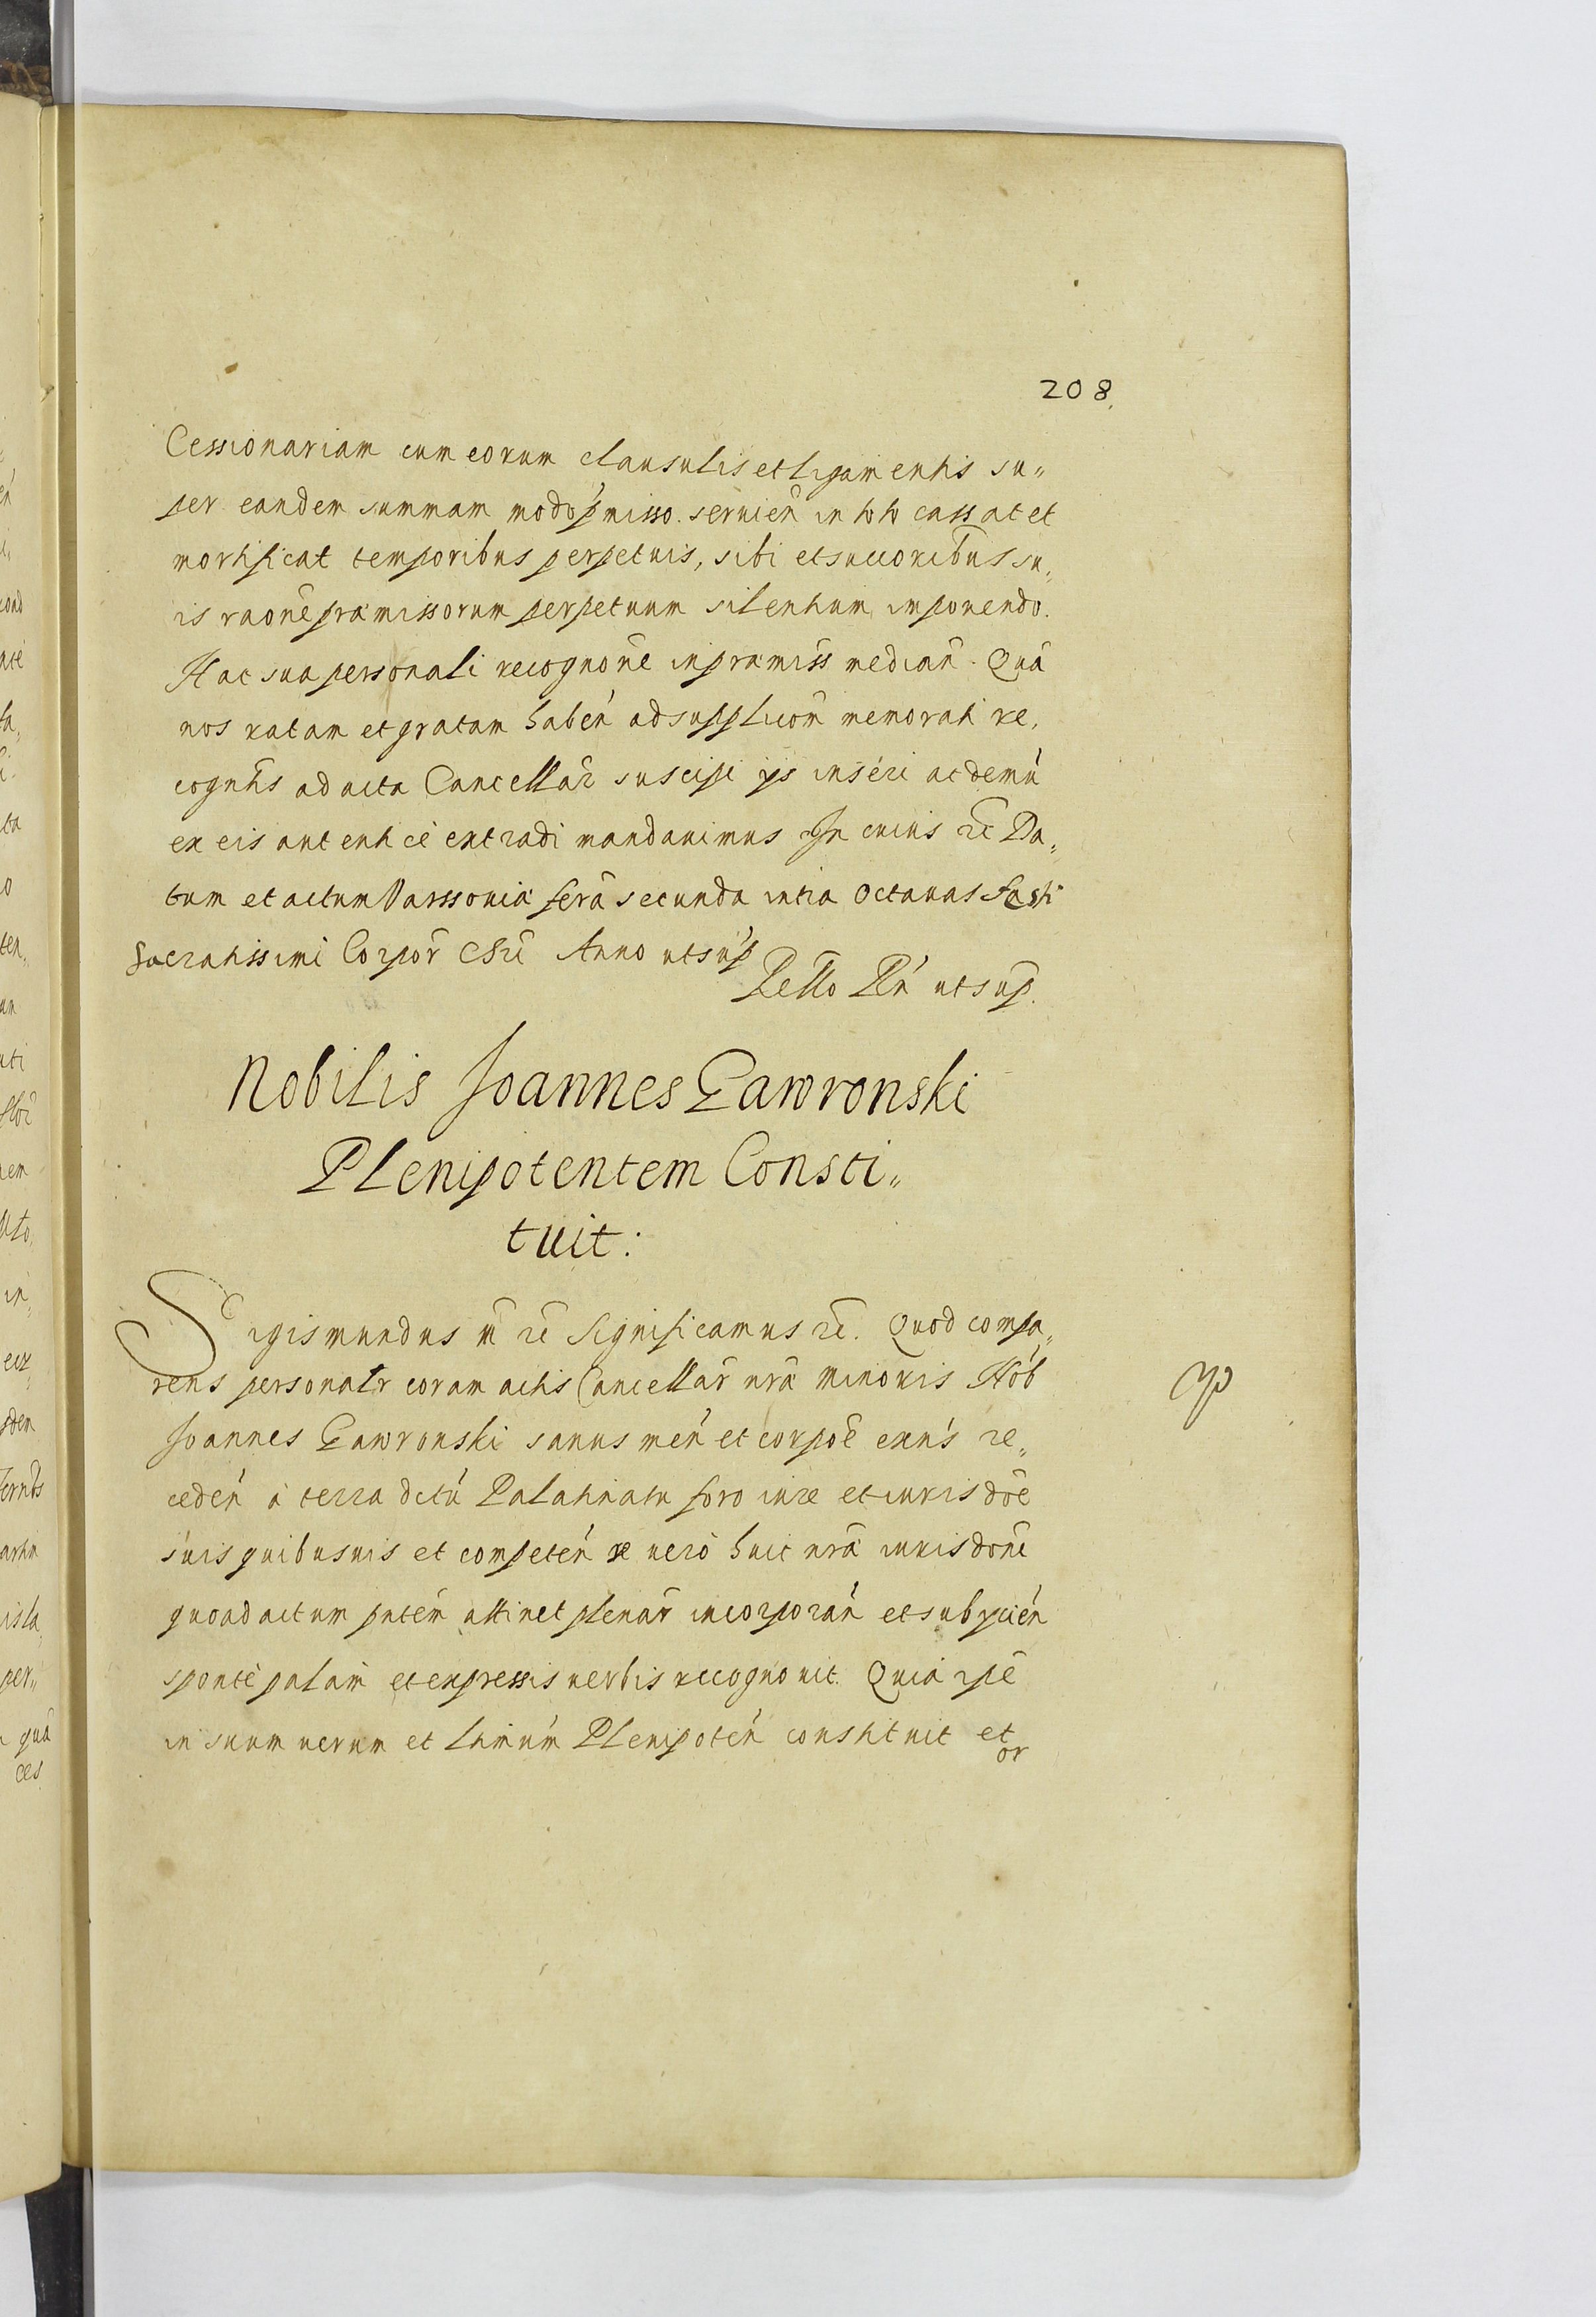 208.
Cessionariam cum eorum clausulis et ligamentis su„
per eandem summam modo p̃misso. seruień in toto cassat et
mortificat temporibus perpetuis, sibi et succoribus su„
is raoñe præmissorum perpetuum silentium imponendo.
Hac sua personali recognoñe in præmiss mediañ. Quã
nos ratam et gratam habeń ad supplicoñ memorati re„
cogntis ad acta Cancellar̃ suscipi ijs inseri ac demũ
ex eis autentice extradi mandauimus In cuius rẽ Da„
tum et actum Varssouiæ ferã secunda intra Octauas Festi
Sacratissimi Corpor̃ Chri Anno ut sup̃
Rello Pń ut sup̃.
Nobilis Joannes Gawronski
Plenipotentem Consti„
tuit:
Sigismundus m̃ rẽ Significamus rẽ. Quod compa„
rens personatr coram actis Cancellar̃ nrã minoris Nób
Joannes Gawronski sanus meń et corpoẽ exńs re„
cedeń à terra Palatinatu foro iure et iurisdoẽ
suis quibusuis et competeń se uerò huic nrã iurisdoñe
quoad actum pntem attinet plenar̃ incorporań et subijcień
sponte palam et expressis uerbis recognouit. Quia ipẽ
in suum uerum et ltimũm Plenipoteń constituit et
or